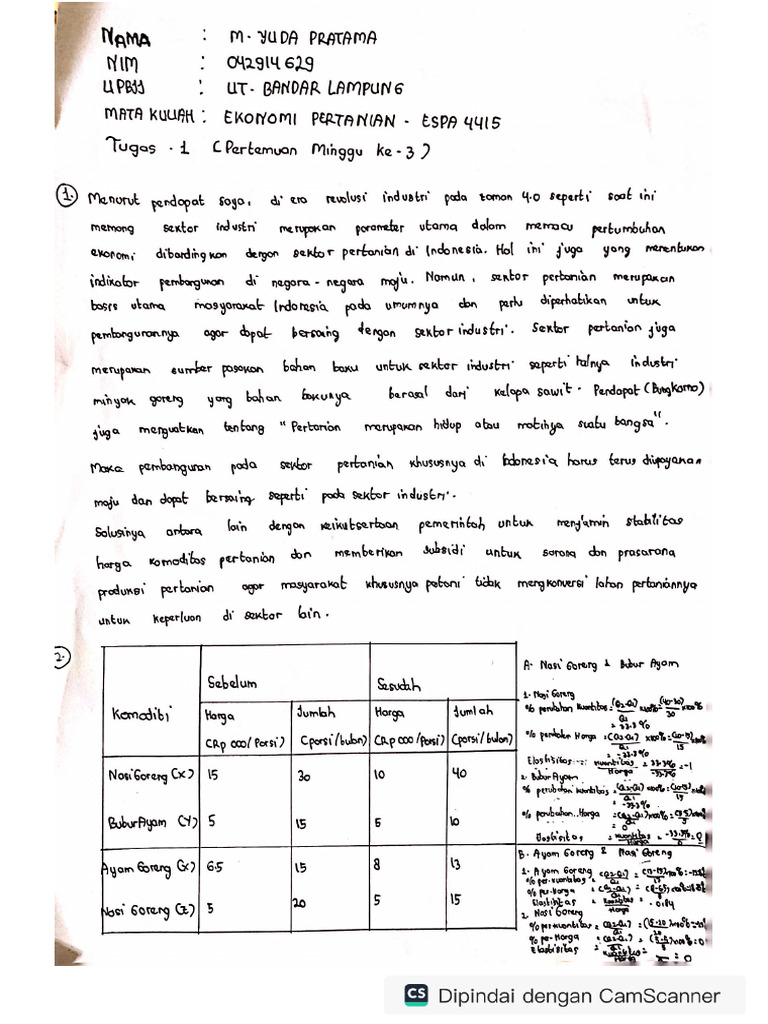 NAMA : M. YUDA PRATAMA
NIM : 042914629
UPBJJ : UT- BANDAR LAMPUNG
MATA KULIAH : EKONOMI PERTANIAN - ESPA 4415
Tugas . 1 (Pertemuan Minggu ke-3)
1. Menurut pendapat saya, di era revolusi industri pada zaman 4.0 seperti saat ini
memang sektor industri merupakan parameter utama dalam memacu pertumbuhan
ekonomi dibandingkan dengan sektor pertanian di Indonesia. Hal ini juga yang menentukan
indikator pembangunan di negara-negara maju. Namun, sektor pertanian merupakan
basis utama masyarakat Indonesia pada umumnya dan perlu diperhatikan untuk
pembangunannya agar dapat bersaing dengan sektor industri. Sektor pertanian juga
merupakan sumber pasokan bahan baku untuk sektor industri seperti halnya industri
minyak goreng yang bahan bakunya berasal dari kelapa sawit. Pendapat (Bungkarno)
juga menguatkan tentang "Pertanian merupakan hidup atau matinya suatu bangsa".
Maka pembangunan pada sektor pertanian khususnya di Idonesia harus terus diupayakan
maju dan dapat bersaing seperti pada sektor industri.
Solusinya antara lain dengan keikutsertaan pemerintah untuk menjamin stabilitas
harga komoditas pertanian dan memberikan subsidi untuk sarana dan prasarana
produksi pertanian agar masyarakat khususnya petani tidak mengkonversi lahan pertaniannya
untuk keperluan di sektor lain.
2.
Komoditi Sebelum Sesudah
Harga Jumlah Harga Jumlah
(Rp 000/Porsi) (porsi/bulan) (Rp 000/porsi) (porsi/bulan)
Nasi Goreng (X) 15 30 10 40
Bubur Ayam (Y) 5 15 5 10
Ayam Goreng (X) 6.5 15 8 13
Nasi Goreng (Z) 5 20 5 15
A. Nasi Goreng & Bubur Ayam
1. Nasi Goreng
% perubahan kuantitas = (Q2-Q1)/Q1 x100% = (40-30)/30 x100%
= 33.3%
% perubahan Harga
= -33.3%
Elastisitas = kuantitas/Harga = 33.3%/-33.3% = -1
2. Bubur Ayam
% perubahan kuantitas
= -33.3%
% perubahan Harga
= 0
Elastisitas = kuantitas/Harga
B. Ayam Goreng & Nasi Goreng
1. Ayam Goreng
Elastisitas
2. Nasi Goreng
Elastisitas
CS Dipindai dengan CamScanner